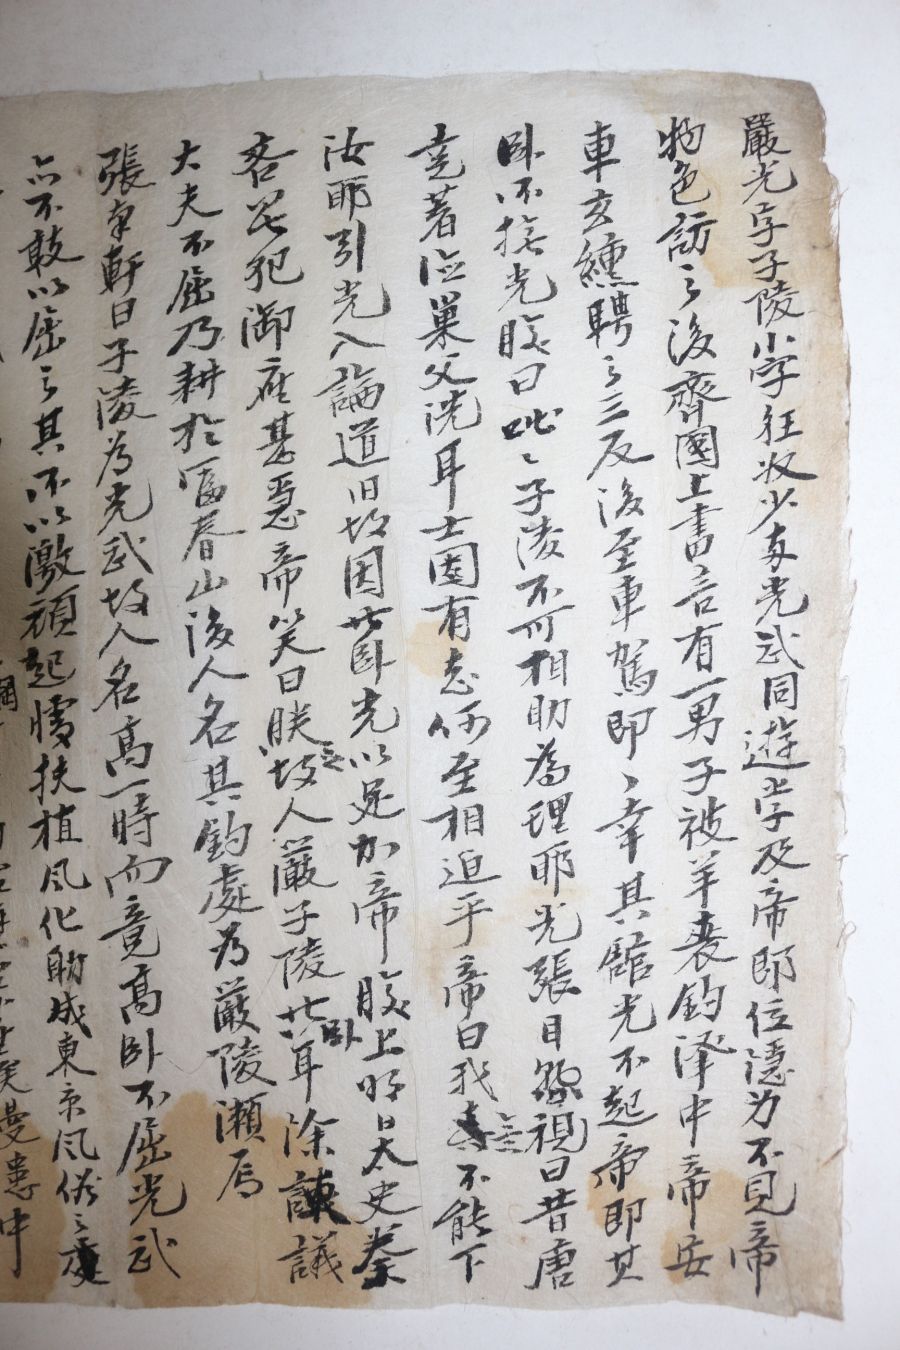 嚴光字子陵小字狂奴少与光武同遊学及帝即位隱为不見帝
物色訪之後齊國上書言有一男子被羊裘釣澤中帝安
車玄纁聘之三反後至車駕即〻幸其館光不起帝即其
卧所撫光腹曰咄〻子陵不可相助為理耶光張目熟視曰昔唐
堯著德巢父洗耳士固有志何至相迫乎帝曰我竟不能下
汝耶引光入論道旧故因共卧光以足加帝腹上明日太史奏
客星犯御座甚急帝笑曰朕故人嚴子陵共卧耳除諫議
大夫不屈乃耕於富春山後人名其釣處为嚴陵瀨焉
張南軒曰子陵为光武故人名高一時而竟高卧不屈光武
亦不敢以屈之其所以激頑起懦扶植风化助成東京风俗之